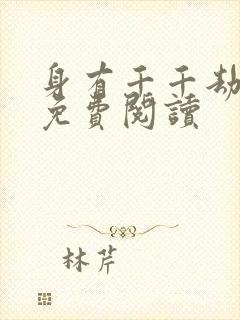 身有千千劫
免費閱讀
林芹